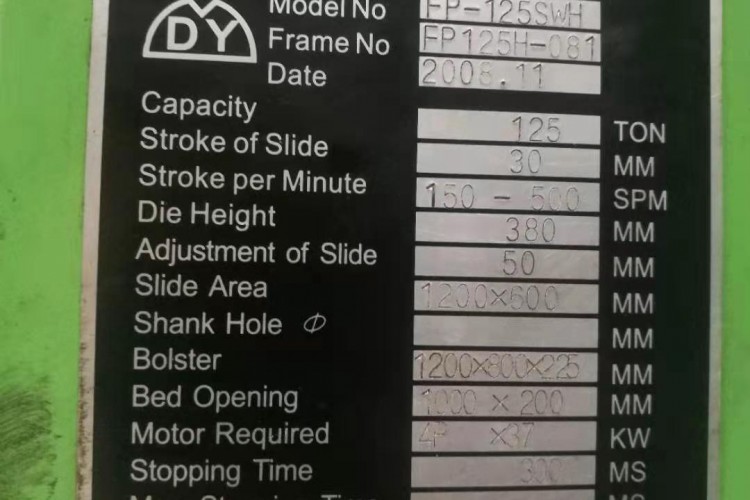 DY
Model No FP-125SWH
Frame No FP125H-081
Date 2008.11
Capacity 125 TON
Stroke of Slide 30 MM
Stroke per Minute 150 - 500 SPM
Die Height 380 MM
Adjustment of Slide 50 MM
Slide Area 1200×600 MM
Shank Hole Φ MM
Bolster 1200×800×225 MM
Bed Opening 1000 × 200 MM
Motor Required 4P ×37 KW
Stopping Time 300 MS
Stopping Time MS